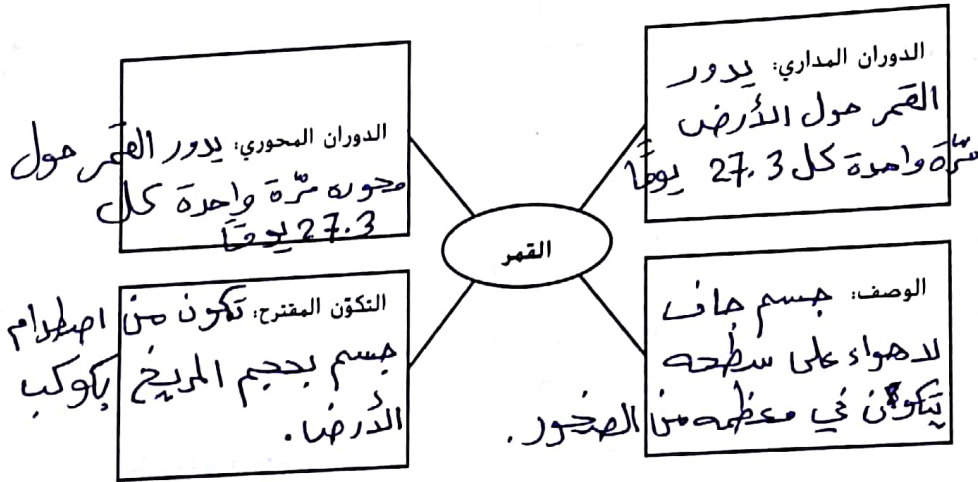 الدوران المداري: يدور
القمر حول الأرض
مرّة واحدة كل 27.3 يومًا
الدوران المحوري: يدور القمر حول
محوره مرّة واحدة كل
27.3 يومًا
القمر
الوصف: جسم جاف
لا هواء على سطحه
يتكون في معظمه من الصخور.
التكوّن المقترح: تكون من اصطدام
جسم بحجم المريخ بكوكب
الأرض.